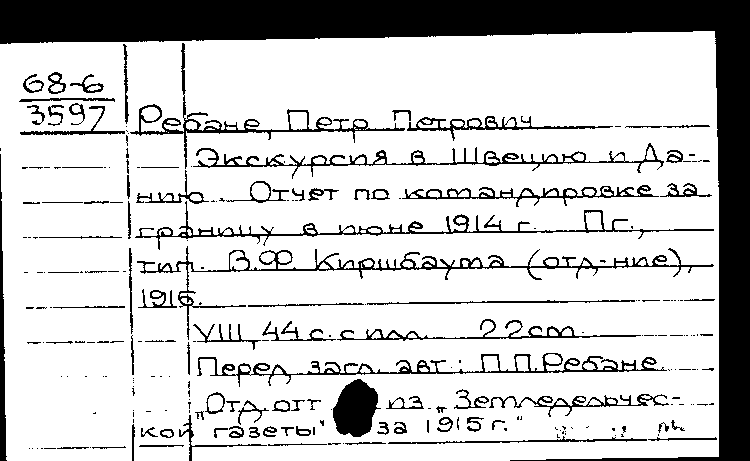 68-6
3597
Ребане, Петр Петрович
Экскурсия в Швецию и Да-
нию. Отчет по командировке за
границу в июне 1914 г. Пг.,
тип. В.Ф. Киршбаума (отд-ние),
1915.
VIII, 44 с. с илл. 22 cm.
Перед загл. авт.: П.П.Ребане
„Отд. отт из „Земледельчес-
кой газеты" за 1915 г."